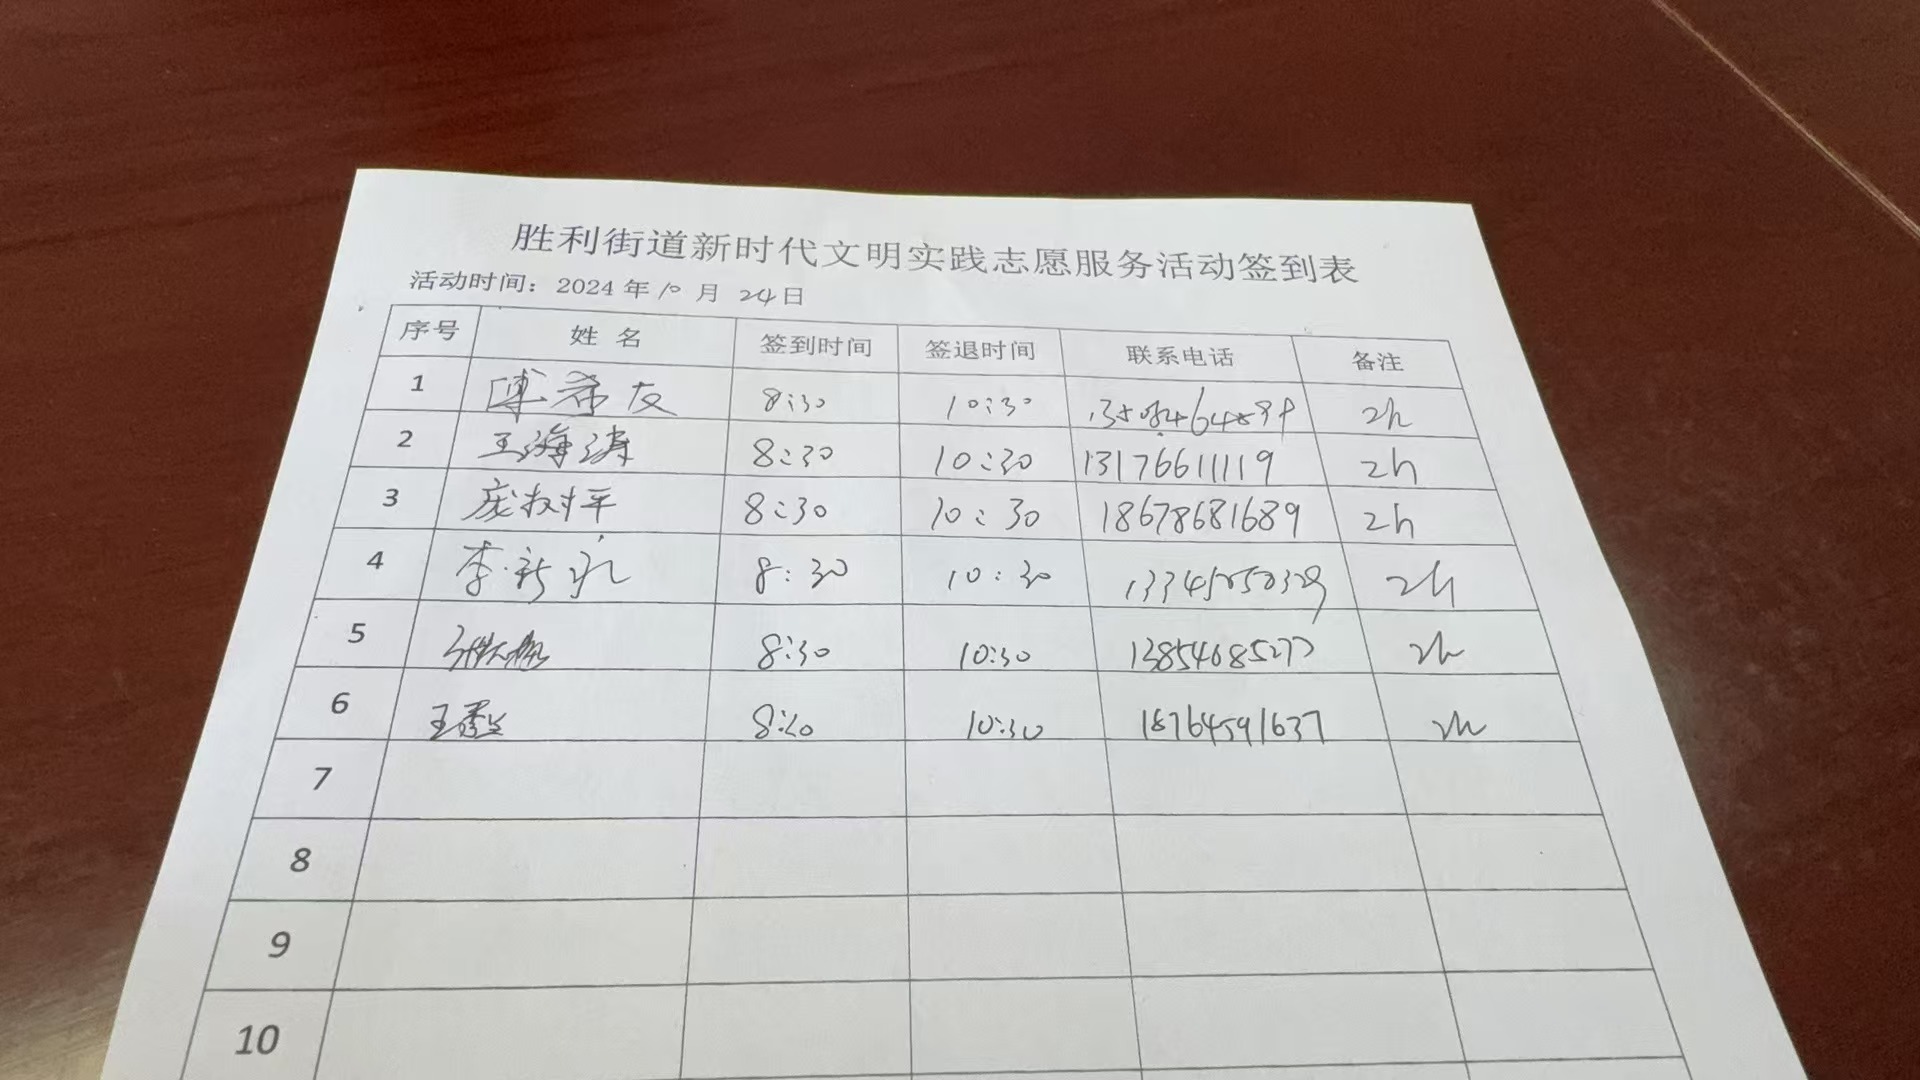 胜利街道新时代文明实践志愿服务活动签到表
活动时间：2024年10月24日
序号 姓名 签到时间 签退时间 联系电话 备注
1 傅希友 8:30 10:30 2h
2 王海涛 8:30 10:30 13176611119 2h
3 庞树平 8:30 10:30 18678681689 2h
4 李新永 8:30 10:30 2h
5 8:30 10:30 13854685277 2h
6 8:30 10:30 18764591637 2h
7
8
9
10